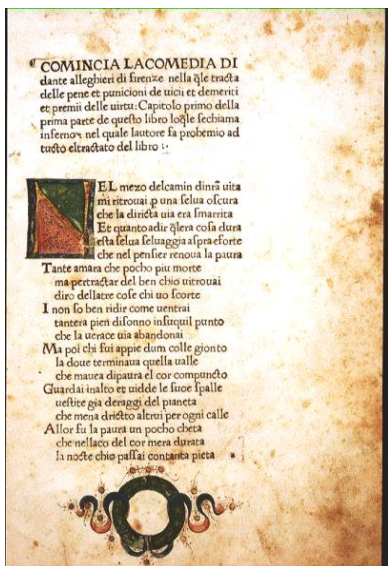 COMINCIA LACOMEDIA DI
dante alleghieri di firenze nella q̄le tracta
delle pene et punicioni de uicii et demeriti
et premii delle uirtu: Capitolo primo della
prima parte de questo libro loq̄le sechiama
inferno: nel quale lautore fa prohemio ad
tucto eltractato del libro :.
NEL mezo delcamin dinr̄a uita
mi ritrouai .p una selua oscura
che la diricta uia era smarrita
Et quanto adir q̄lera cosa dura
esta selua seluaggia aspra eforte
che nel pensier renoua la paura
Tante amara che pocho piu morte
ma pertractar del ben chio uitrouai
diro dellatre cose chi uo scorte
I non so ben ridir come uentrai
tantera pien disonno insuquil punto
che la uerace uia abandonai
Ma poi chi fui appie dum colle gionto
la doue terminaua quella ualle
che mauea dipaura el cor compuncto
Guardai inalto et uidde le suoe spalle
uestite gia deraggi del pianeta
che mena dricto altrui per ogni calle
Allor fu la paura un pocho cheta
che nellaco del cor mera durata
la nocte chio passai contanta pieta